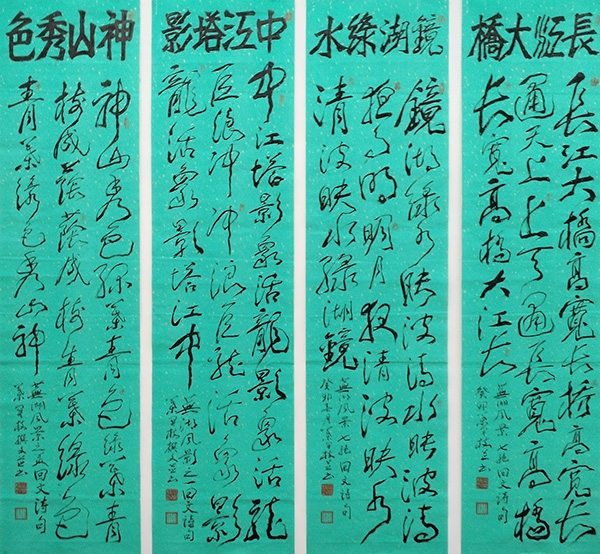 長江大橋
長江大橋高寬長橋高寬長
通天上上天通長寬高橋
長寬高橋大江長
蕪湖風景七絕回文詩句
鏡湖綠水
鏡湖綠水映波清水映波清
夜月明明月夜清波映水
清波映水綠湖鏡
蕪湖風景七絕回文詩句
中江塔影
中江塔影象活龍影象活龍
巨浪冲冲浪巨龍活象影
龍活象影塔江中
蕪湖風影之一回文詩句
神山秀色
神山秀色綠葉青色綠葉青
樹成蔭蔭成樹青葉綠色
青葉綠色秀山神
蕪湖風景之五回文詩句